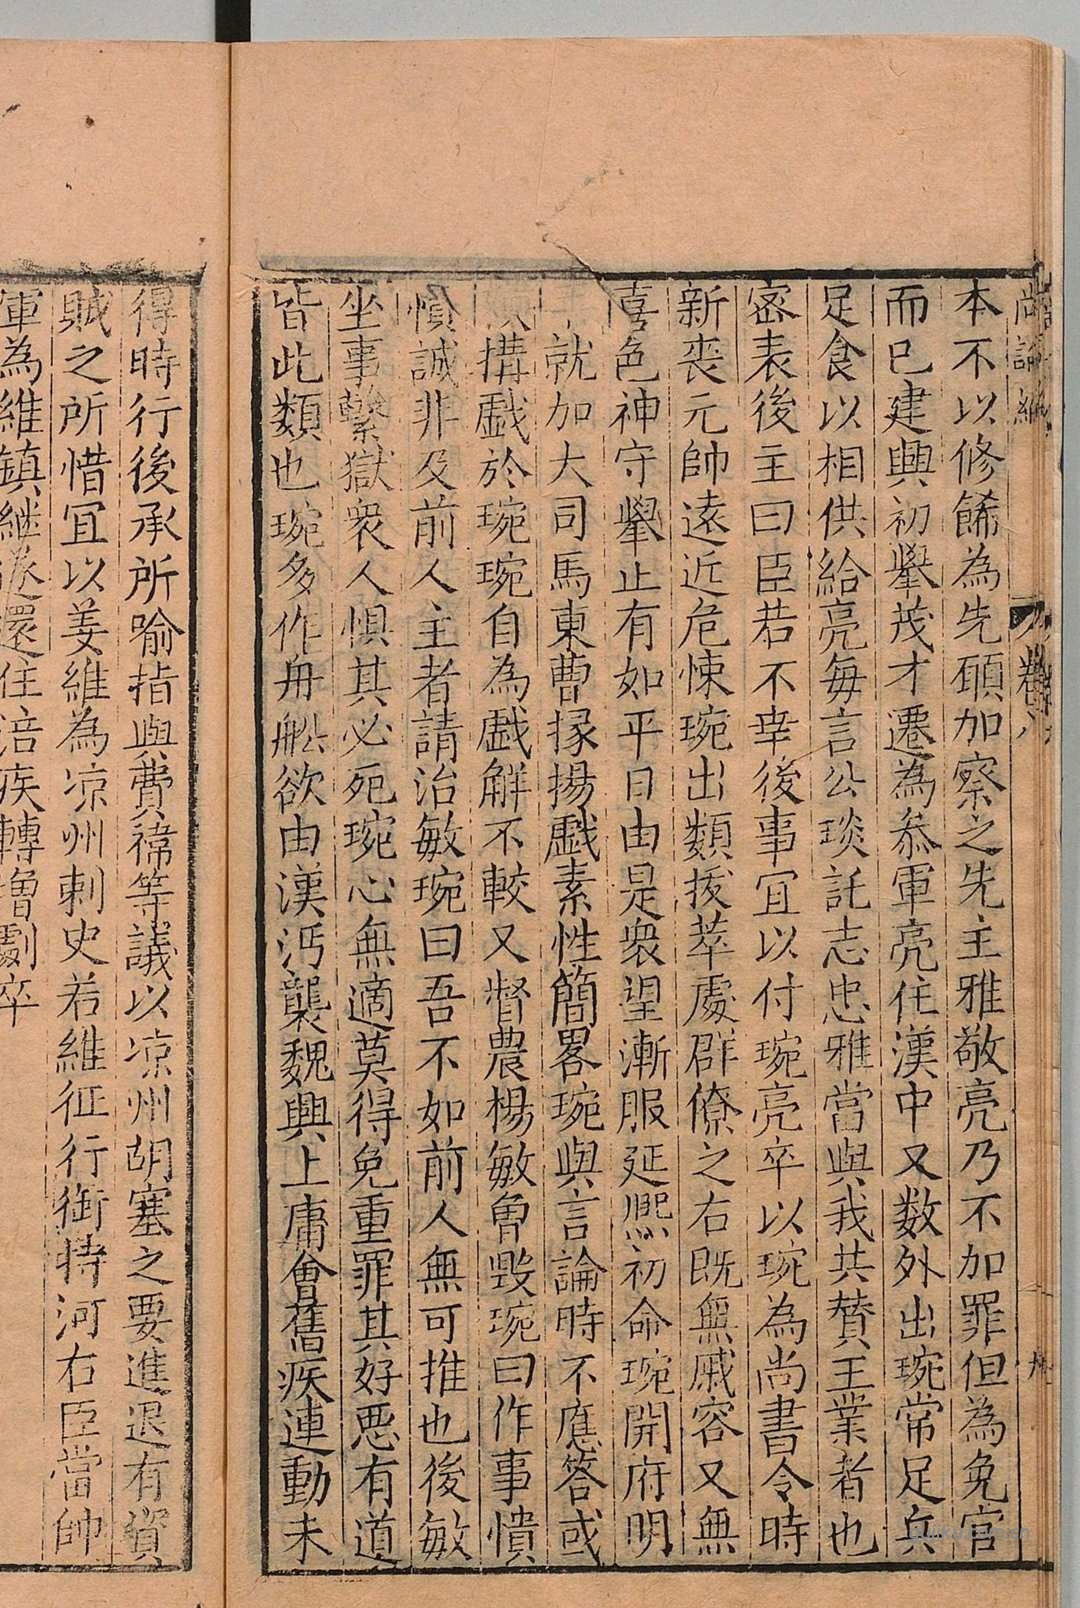 尚論編
卷八
本不以修餙為先頋加察之先主雅敬亮乃不加罪但為免官
而已建興初舉茂才遷為叅軍亮住漢中又数外出琬常足兵
足食以相供給亮每言公琰託志忠雅當與我共贊王業者也
宻表後主曰臣若不幸後事宜以付琬亮卒以琬為尚書令時
新丧元帥遠近危悚琬出類㧞萃處群僚之右既無戚容又無
喜色神守舉止有如平日由是衆望漸服延熈初命琬開府明
就加大司馬東曹掾揚戯素性簡畧琬與言論時不應答或
搆戯於琬琬自為戯解不較又督農楊敏曾毀琬曰作事憒
憒誠非及前人主者請治敏琬曰吾不如前人無可推也後敏
坐事繫獄衆人惧其必死琬心無適莫得免重罪其好惡有道
皆此類也琬多作舟船欲由漢沔襲魏興上庸會舊疾連動未
得時行後承所喻指與費禕等議以凉州胡塞之要進退有資
賊之所惜宜以姜維為凉州刺史若維征行銜持河右臣當帥
軍為維鎮継後還住涪疾轉増劇卒